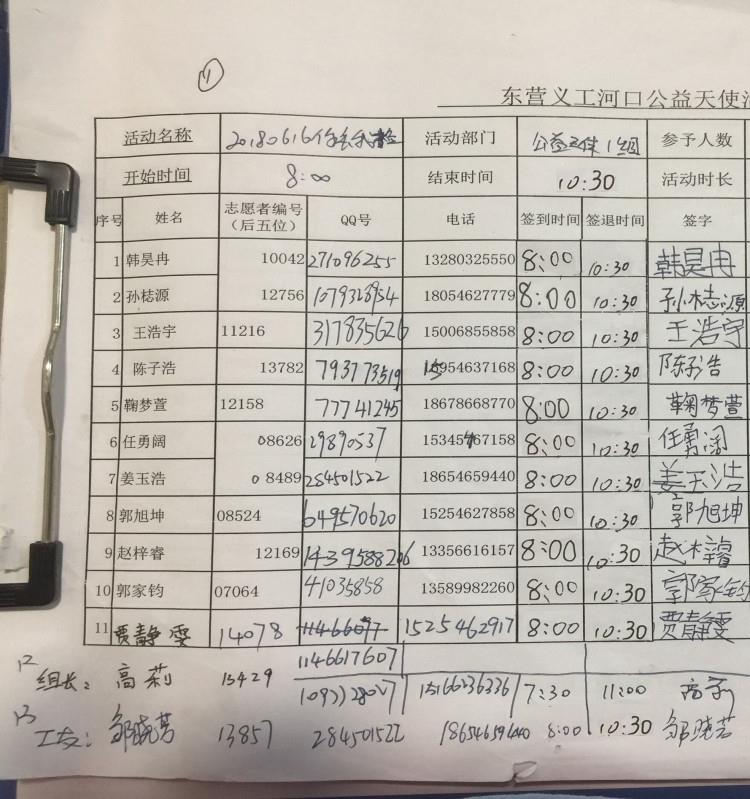 ①
东营义工河口公益天使
活动名称 20180616 活动部门 公益天使1组 参予人数
开始时间 8:00 结束时间 10:30 活动时长
序号 姓名 志愿者编号（后五位） QQ号 电话 签到时间 签退时间 签字
1 韩昊冉 10042 271096255 13280325550 8:00 10:30 韩昊冉
2 孙梽源 12756 1079328954 18054627779 8:00 10:30 孙梽源
3 王浩宇 11216 317835626 15006855858 8:00 10:30 王浩宇
4 陈子浩 13782 793773519 15954637168 8:00 10:30 陈子浩
5 鞠梦萱 12158 77741245 18678668770 8:00 10:30 鞠梦萱
6 任勇阔 08626 29890537 15345467158 8:00 10:30 任勇阔
7 姜玉浩 08489 284501522 18654659440 8:00 10:30 姜玉浩
8 郭旭坤 08524 649570620 15254627858 8:00 10:30 郭旭坤
9 赵梓睿 12169 1439588206 13356616157 8:00 10:30 赵梓睿
10 郭家钧 07064 41035858 13589982260 8:00 10:30 郭家钧
11 贾静雯 14078 1525462917 8:00 10:30 贾静雯
1146617607
12 组长：高莉 15429 15166236336 7:30 11:00 高莉
13 工友：邹晓芳 13857 284501522 18654659440 8:00 10:30 邹晓芳